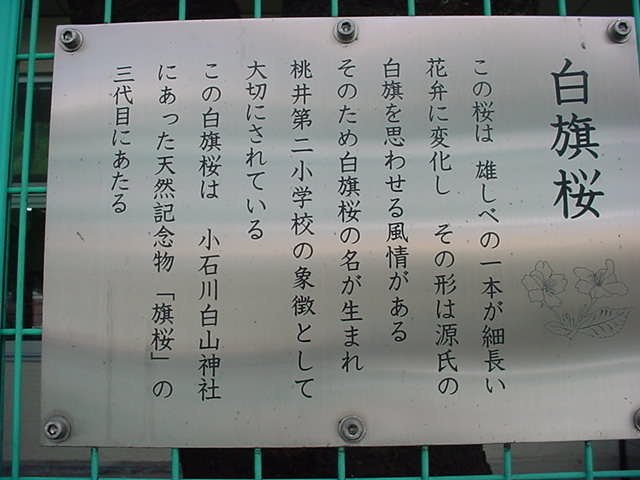 白旗桜
この桜は 雄しべの一本が細長い
花弁に変化し その形は源氏の
白旗を思わせる風情がある
そのため白旗桜の名が生まれ
桃井第二小学校の象徴として
大切にされている
この白旗桜は 小石川白山神社
にあった天然記念物「旗桜」の
三代目にあたる